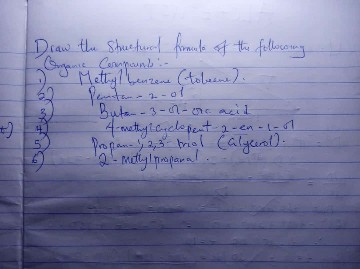 Draw the Structural formula of the following
Organic Compounds:-
1) Methylbenzene (toluene).
2) Pentan-2-ol
3) Butan-3-ol-oic acid
4) 4-methylcyclopent-2-en-1-ol
5) Propan-1,2,3-triol (Glycerol).
6) 2-methylpropanal.